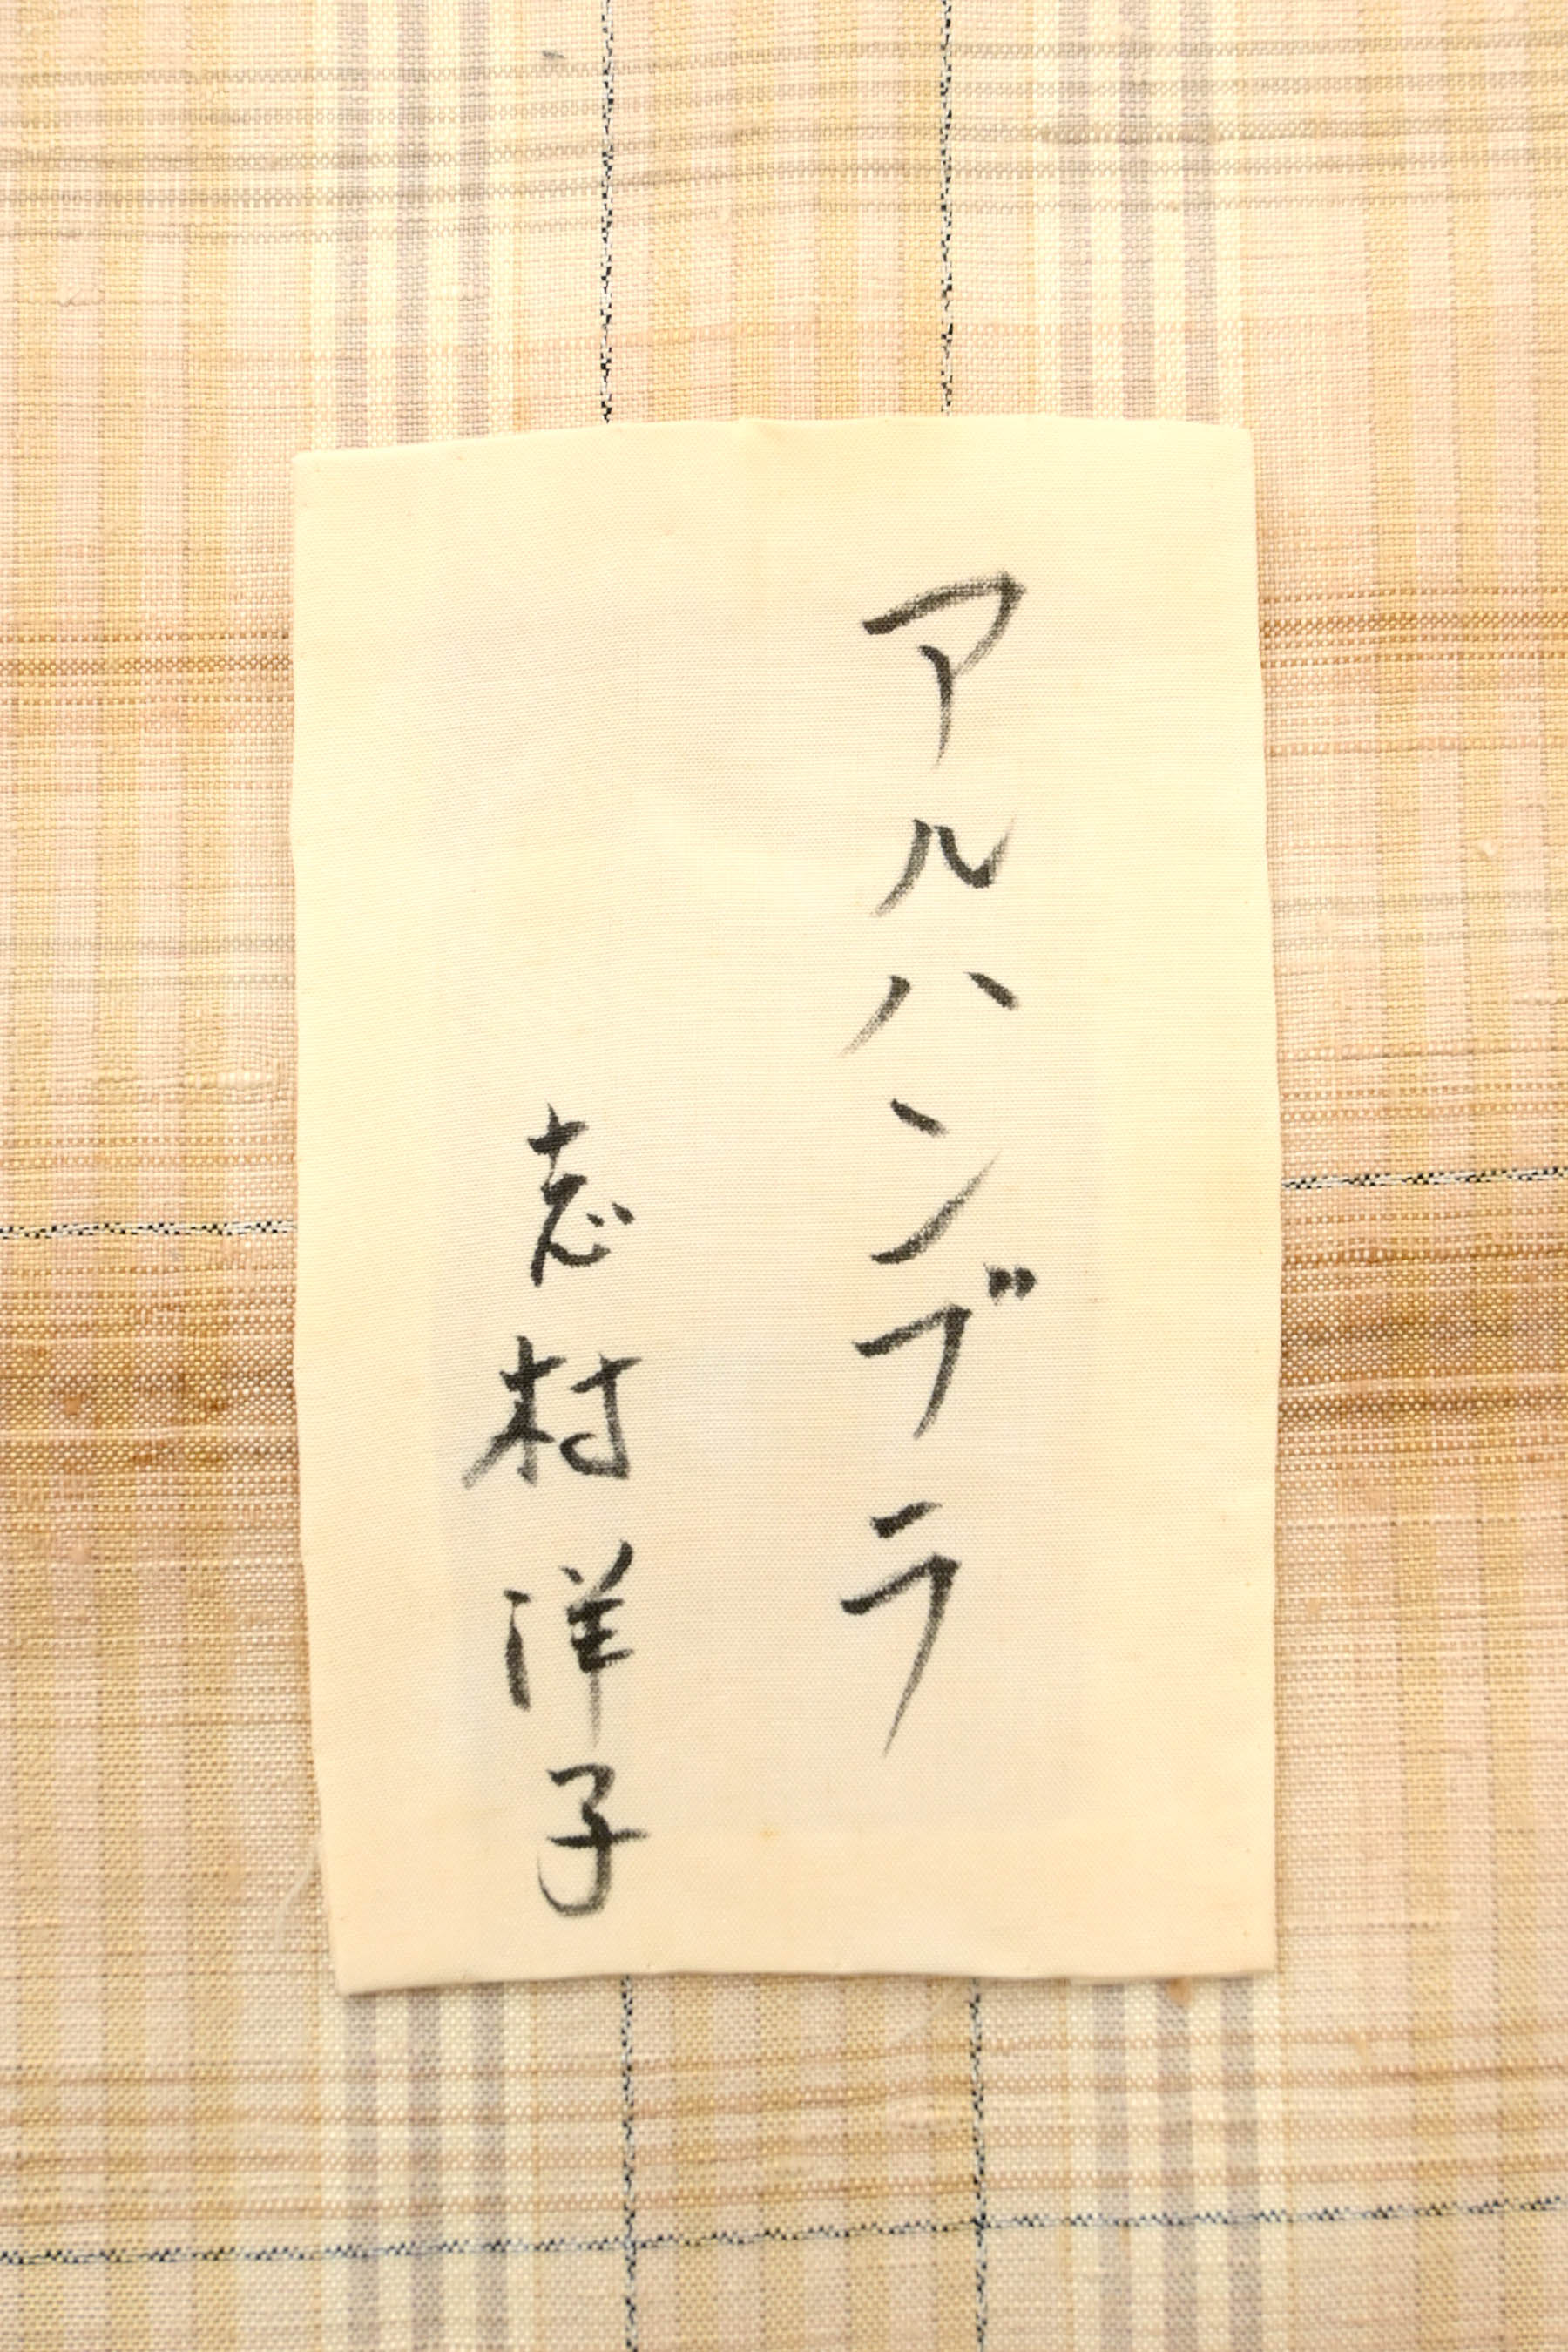 アルハンブラ
志村洋子